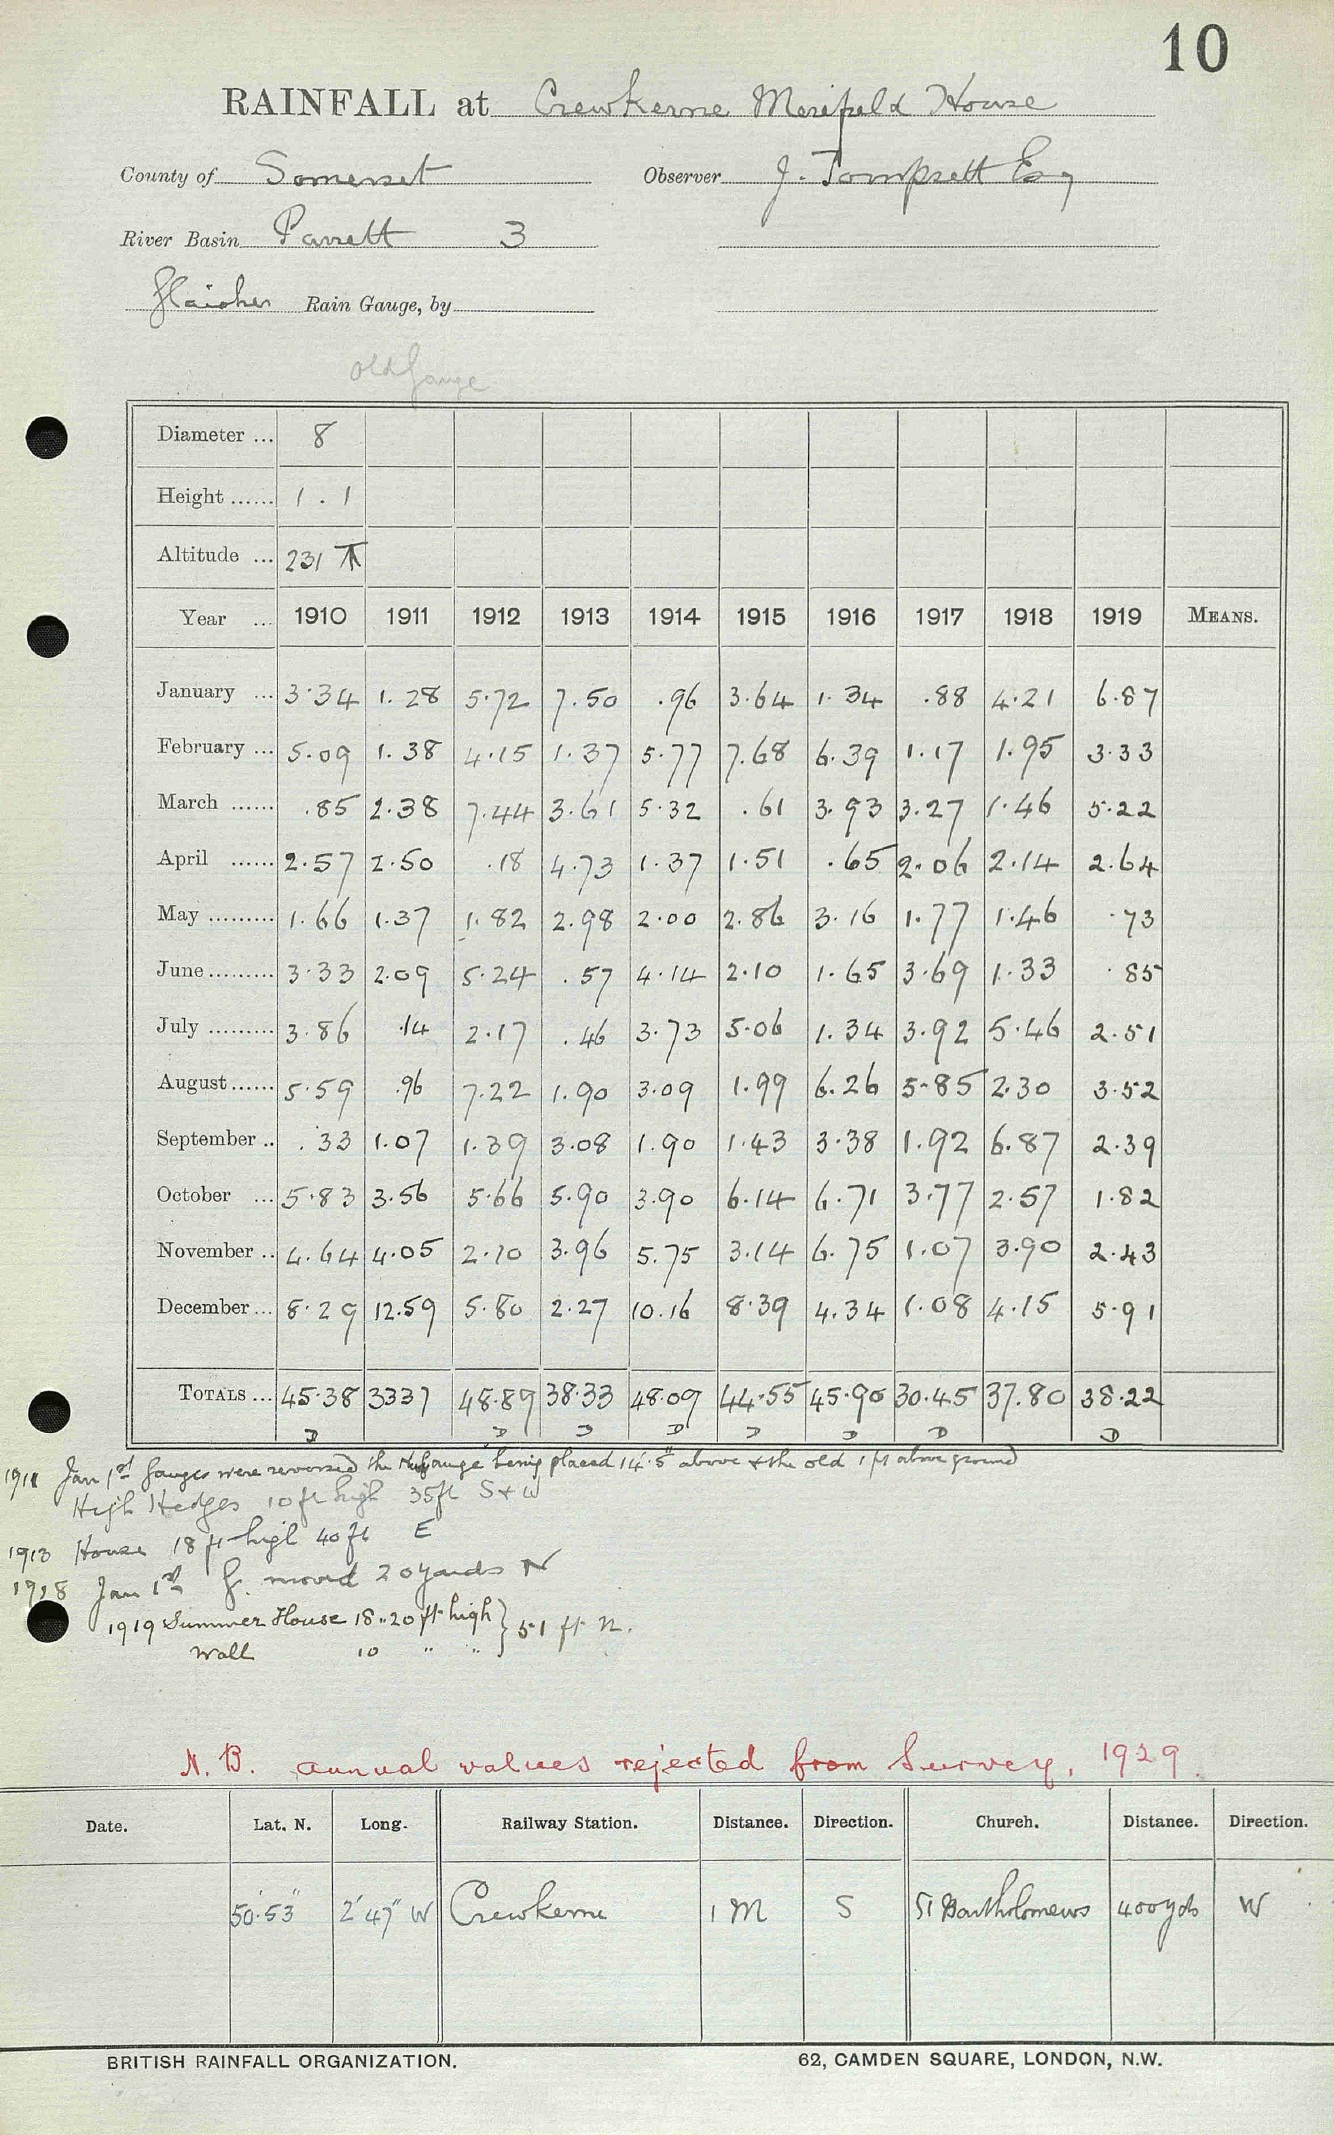 10
RAINFALL at Crewkerne Merefield House
County of Somerset Observer J. Tompsett Esq
River Basin Parrett 3
Rain Gauge, by
Old Gauge
Diameter ... 8
Height ...... 1 . 1
Altitude ... 231
Year ... 1910 1911 1912 1913 1914 1915 1916 1917 1918 1919 MEANS.
January ... 3.34 1.28 5.72 7.50 .96 3.64 1.34 .88 4.21 6.87
February ... 5.09 1.38 4.15 1.37 5.77 7.68 6.39 1.17 1.95 3.33
March ...... .85 2.38 7.44 3.61 5.32 .61 3.93 3.27 1.46 5.22
April ...... 2.57 2.50 .18 4.73 1.37 1.51 .65 2.06 2.14 2.64
May ......... 1.66 1.37 1.82 2.98 2.00 2.86 3.16 1.77 1.46 .73
June ......... 3.33 2.09 5.24 .57 4.14 2.10 1.65 3.69 1.33 .85
July ......... 3.86 .14 2.17 .46 3.73 5.06 1.34 3.92 5.46 2.51
August ...... 5.59 .96 7.22 1.90 3.09 1.99 6.26 5.85 2.30 3.52
September .. .33 1.07 1.39 3.08 1.90 1.43 3.38 1.92 6.87 2.39
October ... 5.83 3.56 5.66 5.90 3.90 6.14 6.71 3.77 2.57 1.82
November .. 4.64 4.05 2.10 3.96 5.75 3.14 6.75 1.07 3.90 2.43
December ... 8.29 12.59 5.80 2.27 10.16 8.39 4.34 1.08 4.15 5.91
TOTALS ... 45.38 3337 48.89 38.33 48.09 44.55 45.90 30.45 37.80 38.22
D D D D D D D D
1911 Jan 1st Gauges were reversed the New gauge being placed 14.5" above & the old 1 ft above ground
High Hedges 10 ft high 35ft S & W
1913 House 18 ft high 40 ft E
1918 Jan 1st G. moved 20 yards N
1919 Summer House 18..20 ft high } 51 ft N.
Wall 10 " "
N.B. annual values rejected from Survey, 1929.
Date. Lat. N. Long. Railway Station. Distance. Direction. Church. Distance. Direction.
50.53 2 47 W Crewkerne 1 M S St Bartholomews 400 yds W
BRITISH RAINFALL ORGANIZATION. 62, CAMDEN SQUARE, LONDON, N.W.